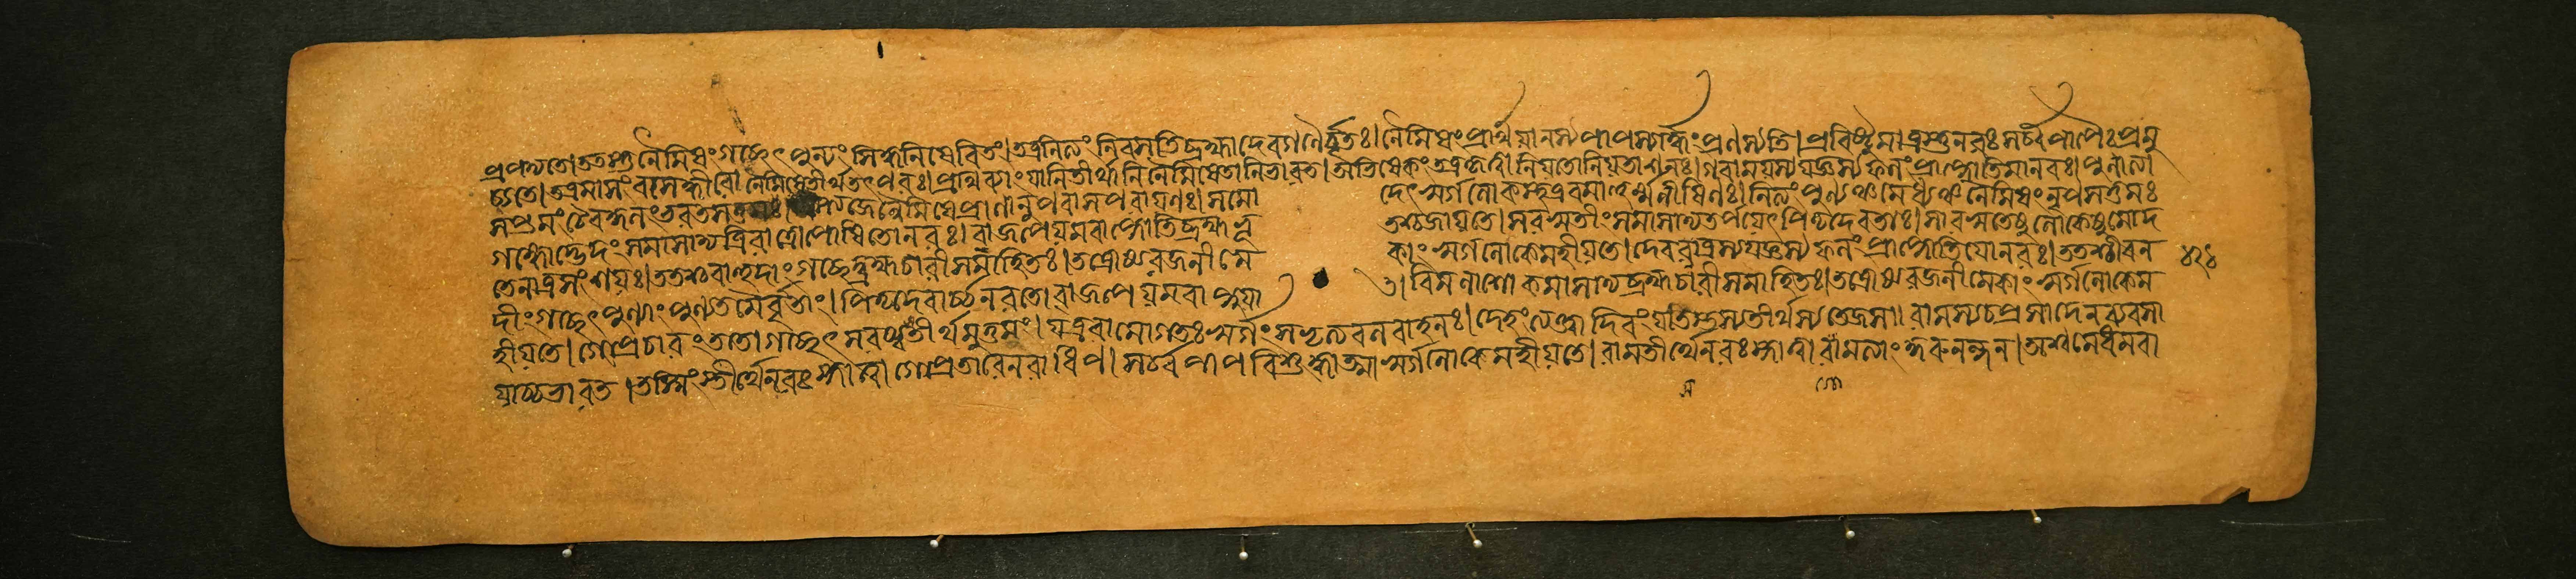 প্রপদ্যতে। ততস্তু নৈমিষং গচ্ছেৎ পুন্যং সিদ্ধনিষেবিতং। তত্র নিত্যং নিবসতি ব্রহ্মা দেবগণৈর্বৃতঃ। নৈমিষং প্রার্থয়ানস্য পাপস্যার্দ্ধং প্রণস্যতি। প্রবিষ্টমাত্রস্তু নরঃ সর্ব্বপাপৈঃ প্রমু
চ্যতে। তত্র মাসং বসেদ্ধীরো নৈমিষে তীর্থতৎপরঃ। পৃথিব্যাং যানি তীর্থানি নৈমিষে তানি ভারত। অভিষেকং তত্র কৃত্বা নিয়তো নিয়তাশনঃ। গবাময়স্য যজ্ঞস্য ফলং প্রাপ্নোতি মানবঃ। পুনাত্যা
সপ্তমং চৈব কুলং ভরতসত্তমঃ। যস্ত্যজেন্নৈমিষে প্রাণানুপবাসপরায়ণঃ। স মো দেৎ স্বর্গলোকস্থ এবমাহুর্ম্মনীষিণঃ। নিত্যং পুণ্যঞ্চ মেধ্যঞ্চ নৈমিষং নৃপসত্তমঃ
গঙ্গোদ্ভেদং সমাসাদ্য ত্রিরাত্রোপোষিতো নরঃ। বাজপেয়মবাপ্নোতি ব্রহ্মভূ তশ্চ জায়তে। সরস্বতীং সমাসাদ্য তর্পয়েৎ পিতৃদেবতাঃ। সারস্বতেষু লোকেষু মোদ
তে নাত্র সংশয়ঃ। ততশ্চ বাহুদাং গচ্ছেদ্ব্রহ্মচারী সমাহিতঃ। তত্রোষ্য রজনীমে কাং স্বর্গলোকে মহীয়তে। দেবসত্রস্য যজ্ঞস্য ফলং প্রাপ্নোতি যো নরঃ। ততশ্চীরব
দীং গচ্ছেৎ পুণ্যাং পুণ্যতমৈর্বৃতাং। পিতৃদেবার্চ্চনরতো বাজপেয়মবাপ্নুয়া ৎ। বিমলাশোকমাসাদ্য ব্রহ্মচারী সমাহিতঃ। তত্রোষ্য রজনীমেকাং স্বর্গলোকে ম
হীয়তে। গোপ্রচারং ততো গচ্ছেৎ সরয্বাস্তীর্থমুত্তমং। যত্র রামো গতঃ স্বর্গং সভৃত্যবলবাহনঃ। দেহং ত্যক্ত্বা দিবং যাতস্তস্য তীর্থস্য তেজসা। রামস্য চ প্রসাদেন ব্যবসা
য়াচ্চ ভারত। তস্মিংস্তীর্থে নরঃ স্নাত্বা গোপ্রতারে নরাধিপ। সর্ব্বপাপবিশুদ্ধাত্মা স্বর্গলোকে মহীয়তে। রামতীর্থে নরঃ স্নাত্বা গোমত্যাং কুরুনন্দন। অশ্বমেধমবা